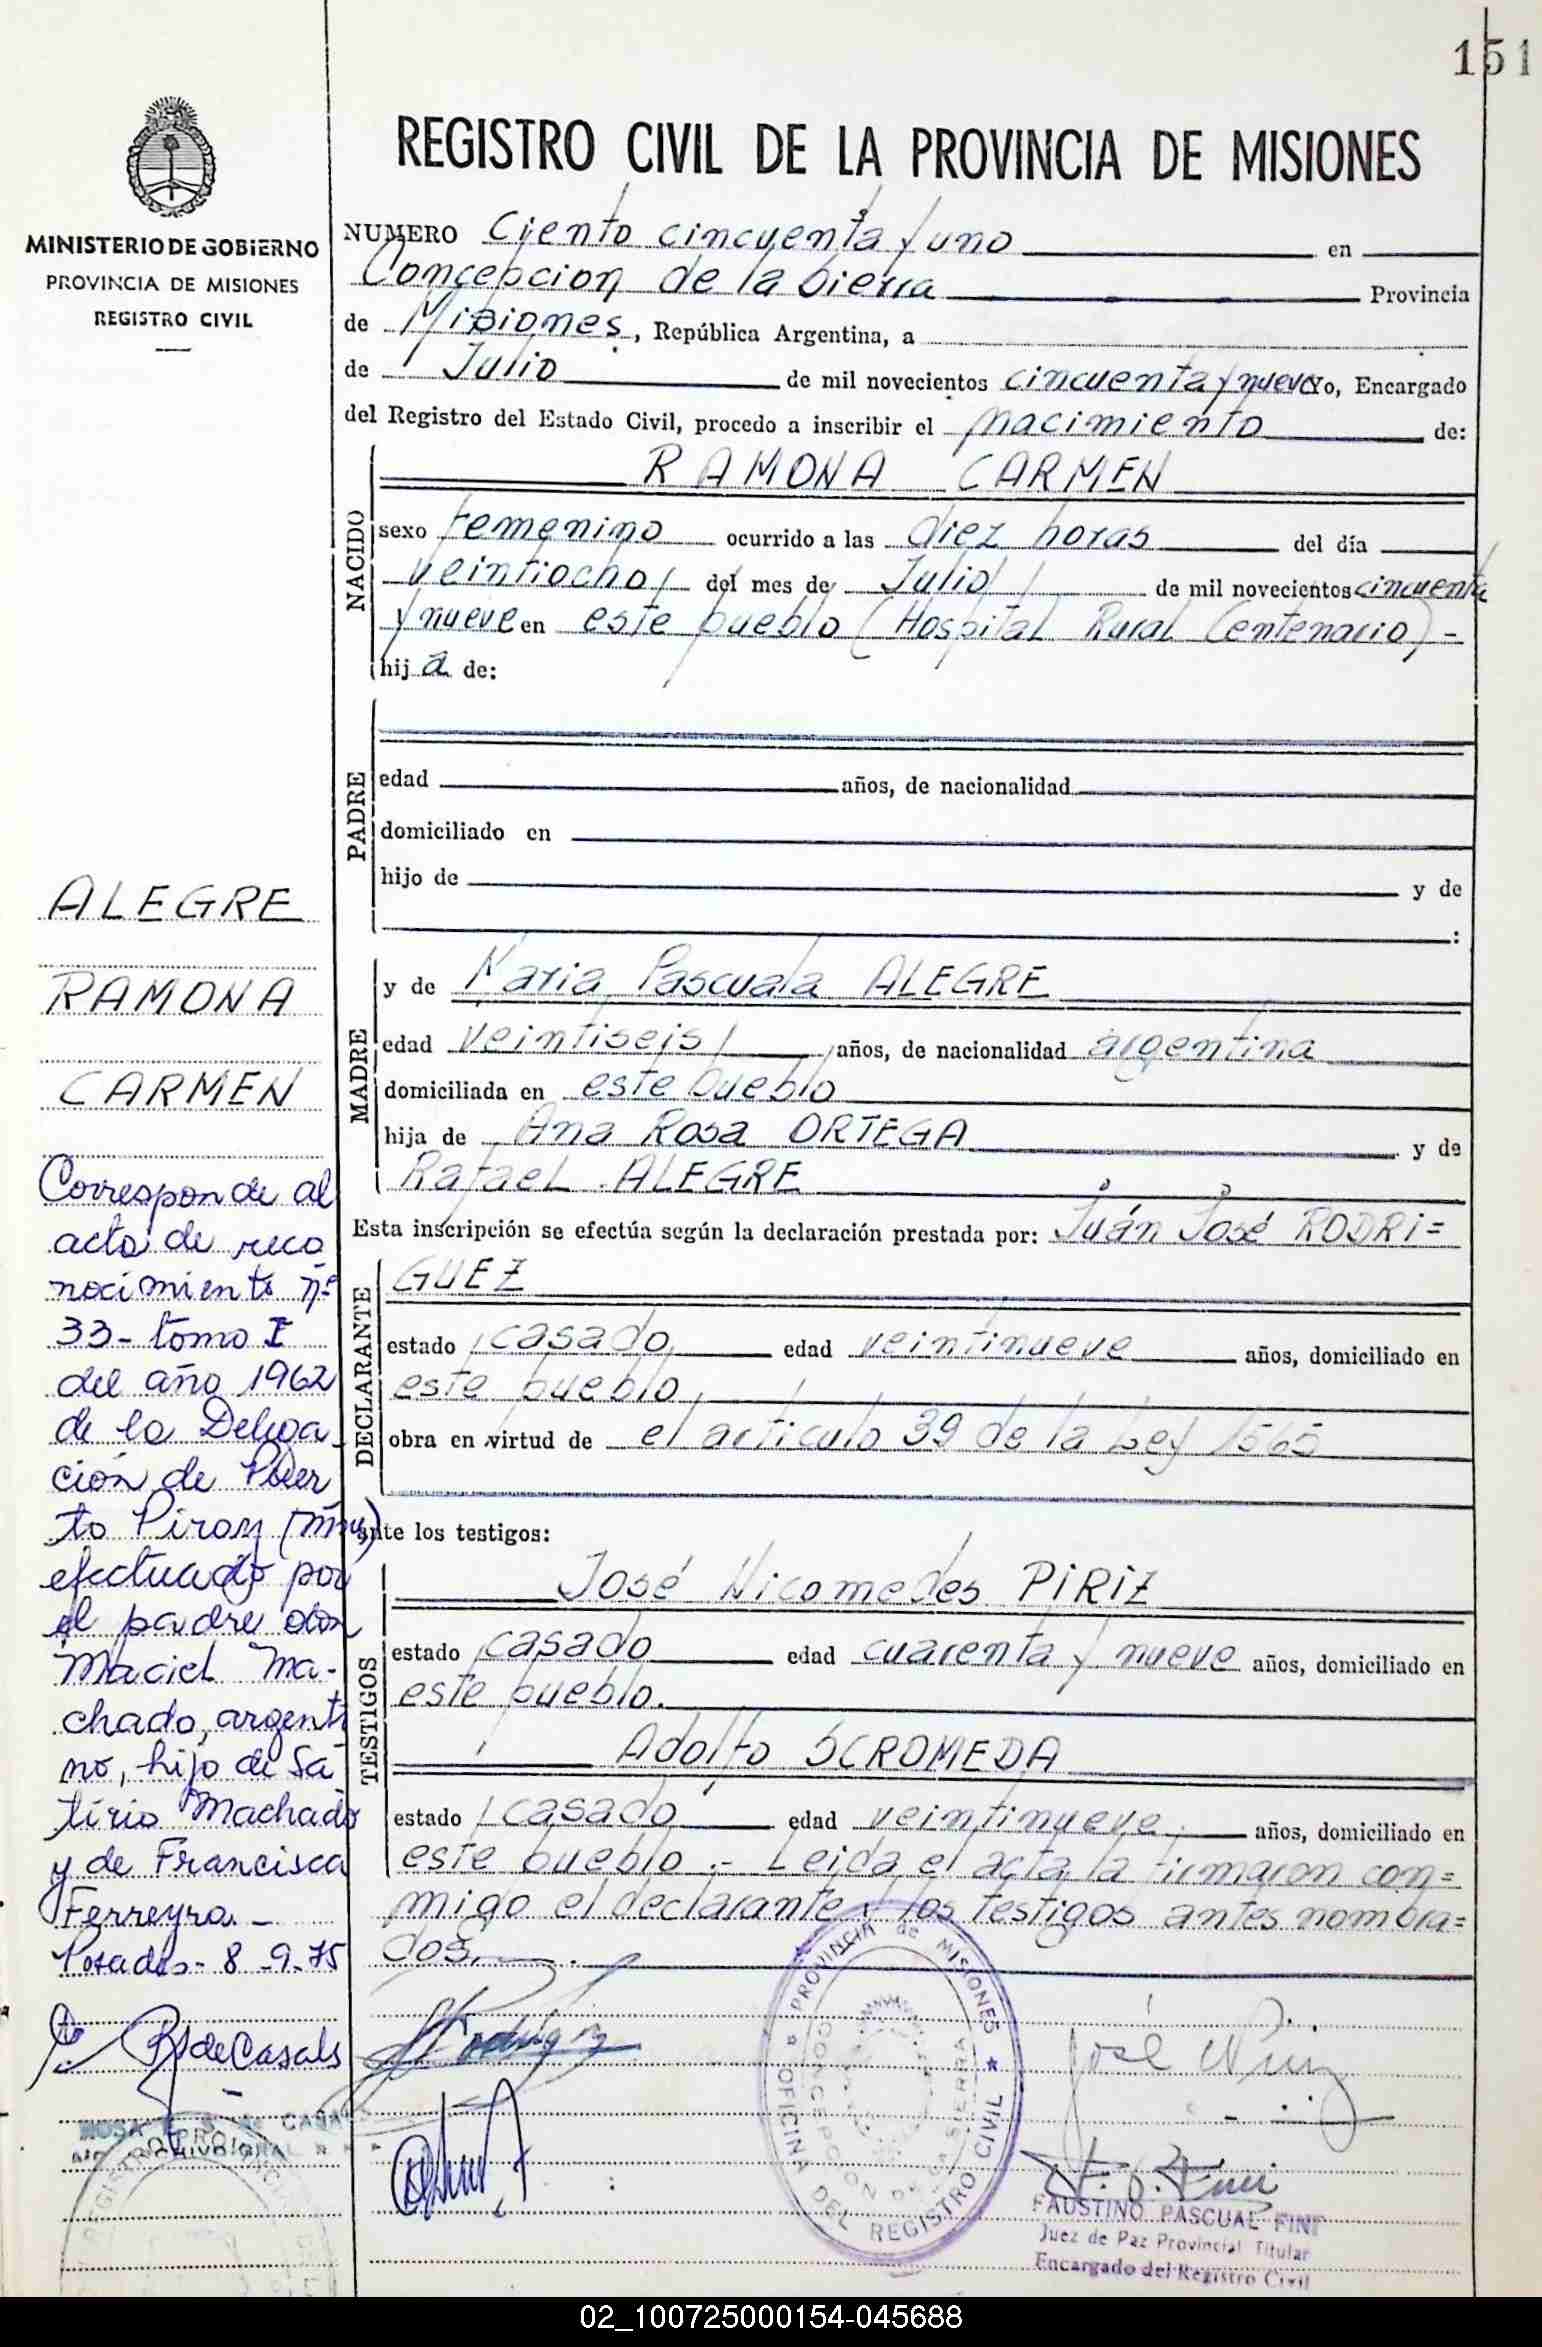 151
REGISTRO CIVIL DE LA PROVINCIA DE MISIONES
MINISTERIO DE GOBIERNO
PROVINCIA DE MISIONES
REGISTRO CIVIL
NUMERO Ciento cincuenta y uno en
Concepcion de la Sierra Provincia
de Misiones, República Argentina, a
de Julio de mil novecientos cincuenta y nueve Yo, Encargado
del Registro del Estado Civil, procedo a inscribir el nacimiento de:
NACIDO
RAMONA CARMEN
sexo femenino ocurrido a las diez horas del día
veintiocho del mes de Julio de mil novecientos cincuenta
y nueve en este pueblo (Hospital Rural Centenario) -
hija de:
PADRE
edad años, de nacionalidad
domiciliado en
hijo de y de
:
MADRE
y de Maria Pascuala ALEGRE
edad veintiseis años, de nacionalidad argentina
domiciliada en este pueblo
hija de Ana Rosa ORTEGA y de
Rafael ALEGRE
Esta inscripción se efectúa según la declaración prestada por: Juán José RODRI=
DECLARANTE
GUEZ
estado casado edad veintinueve años, domiciliado en
este pueblo
obra en virtud de el articulo 39 de la Ley 1565
ante los testigos:
TESTIGOS
José Nicomedes PIRIZ
estado casado edad cuarenta y nueve años, domiciliado en
este pueblo.
Adolfo SCROMEDA
estado casado edad veintinueve años, domiciliado en
este pueblo.- Leida el acta la firmaron con=
migo el declarante y los testigos antes nombra=
dos.
ALEGRE
RAMONA
CARMEN
Corresponde al
acta de reco
nocimiento nº
33- tomo I
del año 1962
de la Delega
ción de Puer
to Piray (Mnes)
efectuado por
el padre don
Maciel Ma-
chado, argenti
no, hijo de Sa
tirio Machado
y de Francisca
Ferreyra.-
Posadas- 8-9-75
R. de Casals
José N Piriz
PROVINCIA de MISIONES
OFICINA DEL REGISTRO CIVIL
CONCEPCION DE LA SIERRA
FAUSTINO PASCUAL FINI
Juez de Paz Provincial Titular
Encargado del Registro Civil
02_100725000154-045688